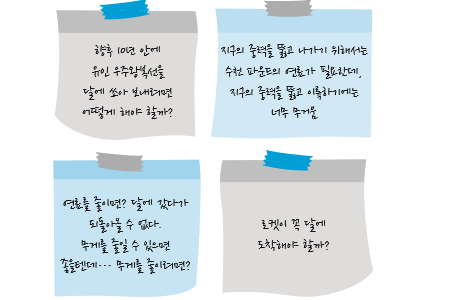 향후 10년 안에
유인 우주왕복선을
달에 쏘아 보내려면
어떻게 해야 할까?
지구의 중력을 뚫고 나가기 위해서는
수천 파운드의 연료가 필요한데,
지구의 중력을 뚫고 이륙하기에는
너무 무거움
연료를 줄이면? 달에 갔다가
되돌아올 수 없다.
무게를 줄일 수 있으면
좋을텐데… 무게를 줄이려면?
로켓이 꼭 달에
도착해야 할까?